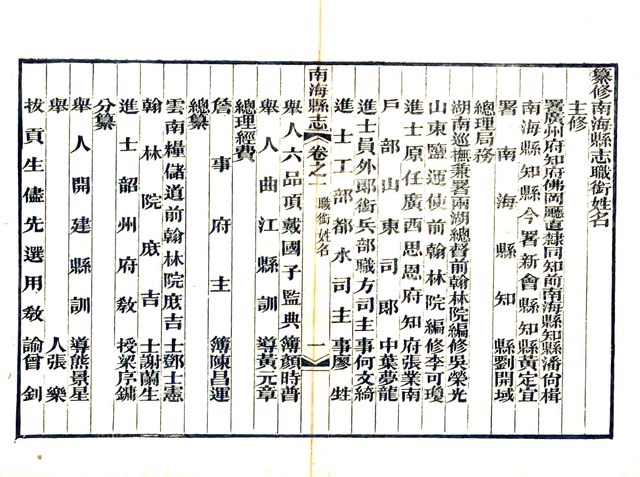 纂修南海縣志職銜姓名
主修
署廣州府知府佛岡廳直隸同知前南海縣知縣潘尙楫
南海縣知縣今署新會縣知縣黃定宜
署南海縣知縣劉開域
總理局務
湖南巡撫兼署兩湖總督前翰林院編修吳榮光
山東鹽運使前翰林院編修李可瓊
進士原任廣西思恩府知府張業南
戶部山東司郞中葉夢龍
進士員外郞銜兵部職方司主事何文綺
進士工部都水司主事廖甡
南海縣志
卷之一
職銜姓名
一
舉人六品頂戴國子監典簿顏時普
舉人曲江縣訓導黃元章
總理經費
詹事府主簿陳昌運
總纂
雲南糧儲道前翰林院庶吉士鄧士憲
翰林院庶吉士謝蘭生
分纂
進士韶州府敎授梁序鏞
舉人開建縣訓導熊景星
舉人張樂
拔貢生儘先選用敎諭曾釗